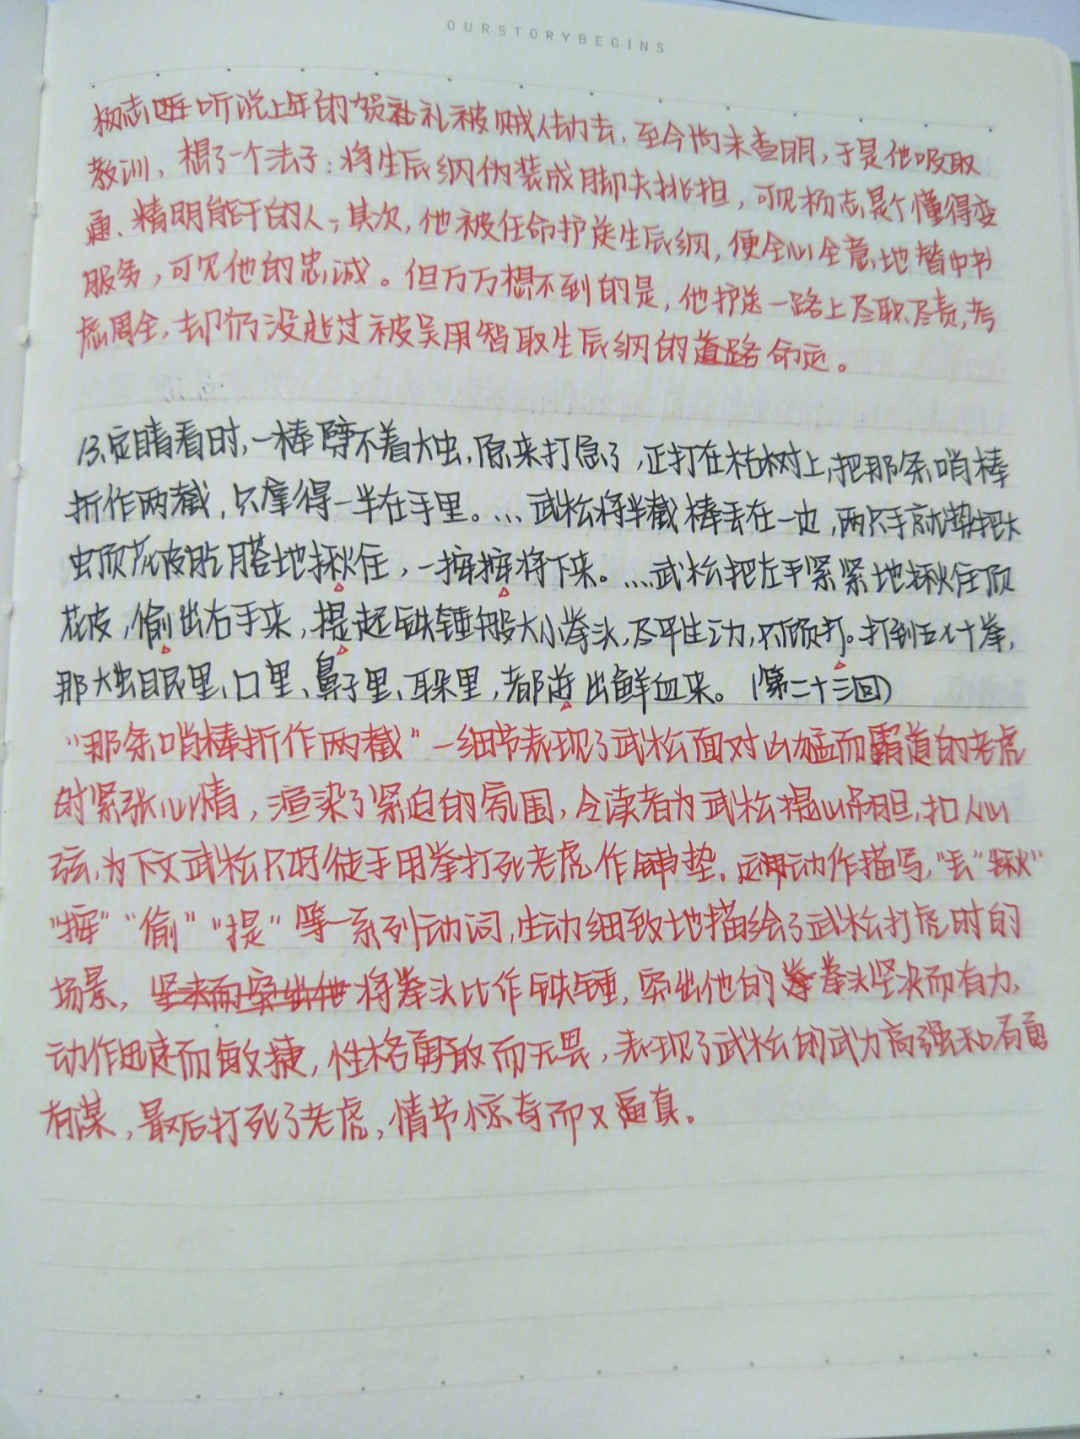 OURSTORYBEGINS
杨志听说上年的贺礼被贼人劫去,至今尚未查明,于是他吸取
教训,想了一个法子:将生辰纲伪装成脚夫挑担,可见杨志是个懂得变
通、精明能干的人;其次,他被任命护送生辰纲,便全心全意地替中书
服务,可见他的忠诚。但万万想不到的是,他护送一路上尽职尽责,考
虑周全,却仍没逃过被吴用智取生辰纲的道路命运。
13.定睛看时,一棒劈不着大虫,原来打急了,正打在枯树上,把那条哨棒
折作两截,只拿得一半在手里。…武松将半截棒丢在一边,两只手就势把大
虫顶花皮肐𦜮地揪住,一按按将下来。…武松把左手紧紧地揪住顶
花皮,偷出右手来,提起铁锤般大小拳头,尽平生之力,只顾打。打到五七十拳,
那大虫眼里、口里、鼻子里、耳朵里,都迸出鲜血来。(第二十三回)
“那条哨棒折作两截”一细节表现了武松面对凶猛而霸道的老虎
时紧张心情,渲染了紧迫的氛围,令读者为武松提心吊胆,扣人心
弦,为下文武松只好徒手用拳打死老虎作铺垫。运用动作描写,“丢”“揪”
“按”“偷”“提”等一系列动词,生动细致地描绘了武松打虎时的
场景,将拳头比作铁锤,突出他的拳头坚决而有力,
动作迅速而敏捷,性格勇敢而无畏,表现了武松的武力高强和有勇
有谋,最后打死了老虎,情节惊奇而又逼真。